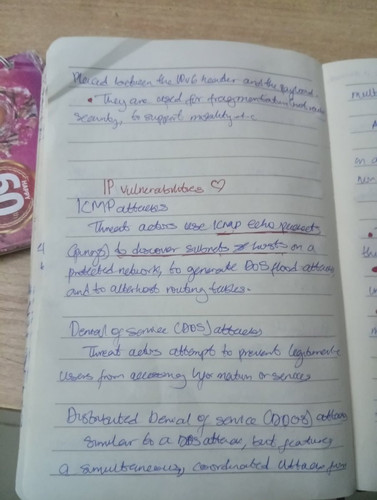 Placed between the IPv6 header and the payload.
• They are used for fragmentation, and
security, to support mobility etc
IP vulnerabilities ♡
ICMP attacks
Threat actors use Icmp echo
(pings) to discover subnets & hosts on a
protected network, to generate DOS flood attacks
and to alter host routing tables.
Denial of service (DOS) attacks
Threat actors attempt to prevent legitimate
users from accessing information or services
Distributed Denial of service (DDOS) attacks
Similar to a DOS attack, but features
a simultaneous, coordinated attack from